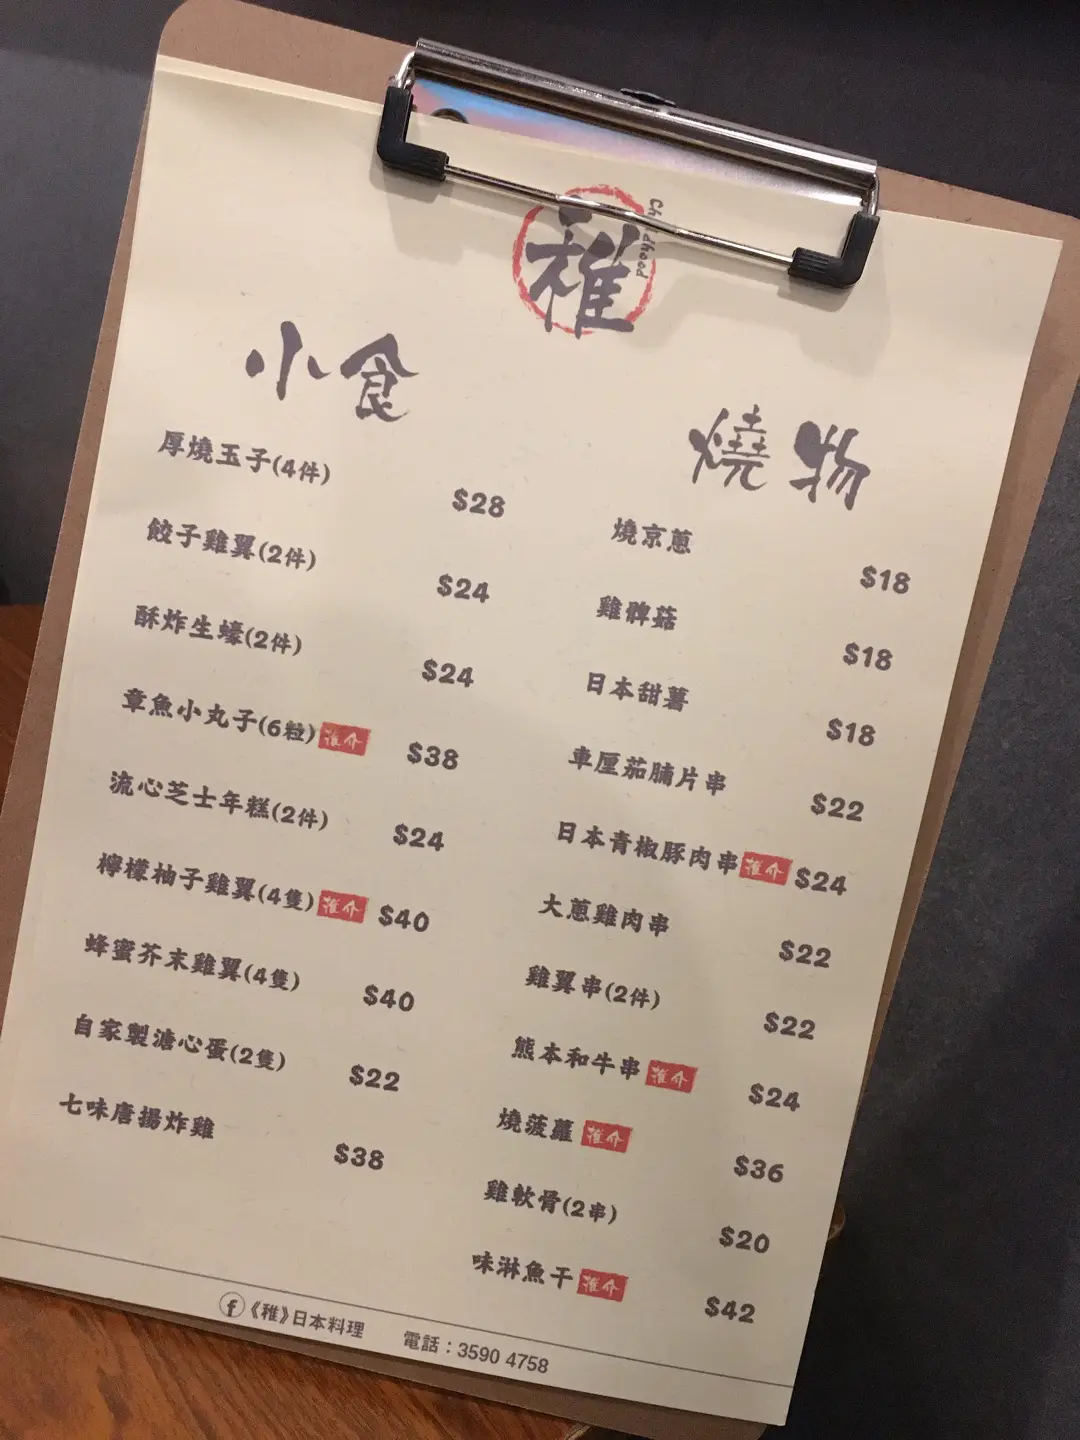 稚
小食
厚燒玉子(4件) $28
餃子雞翼(2件) $24
酥炸生蠔(2件) $24
章魚小丸子(6粒) 推介 $38
流心芝士年糕(2件) $24
檸檬柚子雞翼(4隻) 推介 $40
蜂蜜芥末雞翼(4隻) $40
自家製溏心蛋(2隻) $22
七味唐揚炸雞 $38
燒物
燒京蔥 $18
雞髀菇 $18
日本甜薯 $18
車厘茄腩片串 $22
日本青椒豚肉串 推介 $24
大蔥雞肉串 $22
雞翼串(2件) $22
熊本和牛串 推介 $24
燒菠蘿 推介 $36
雞軟骨(2串) $20
味淋魚干 推介 $42
f 《稚》日本料理 電話：3590 4758